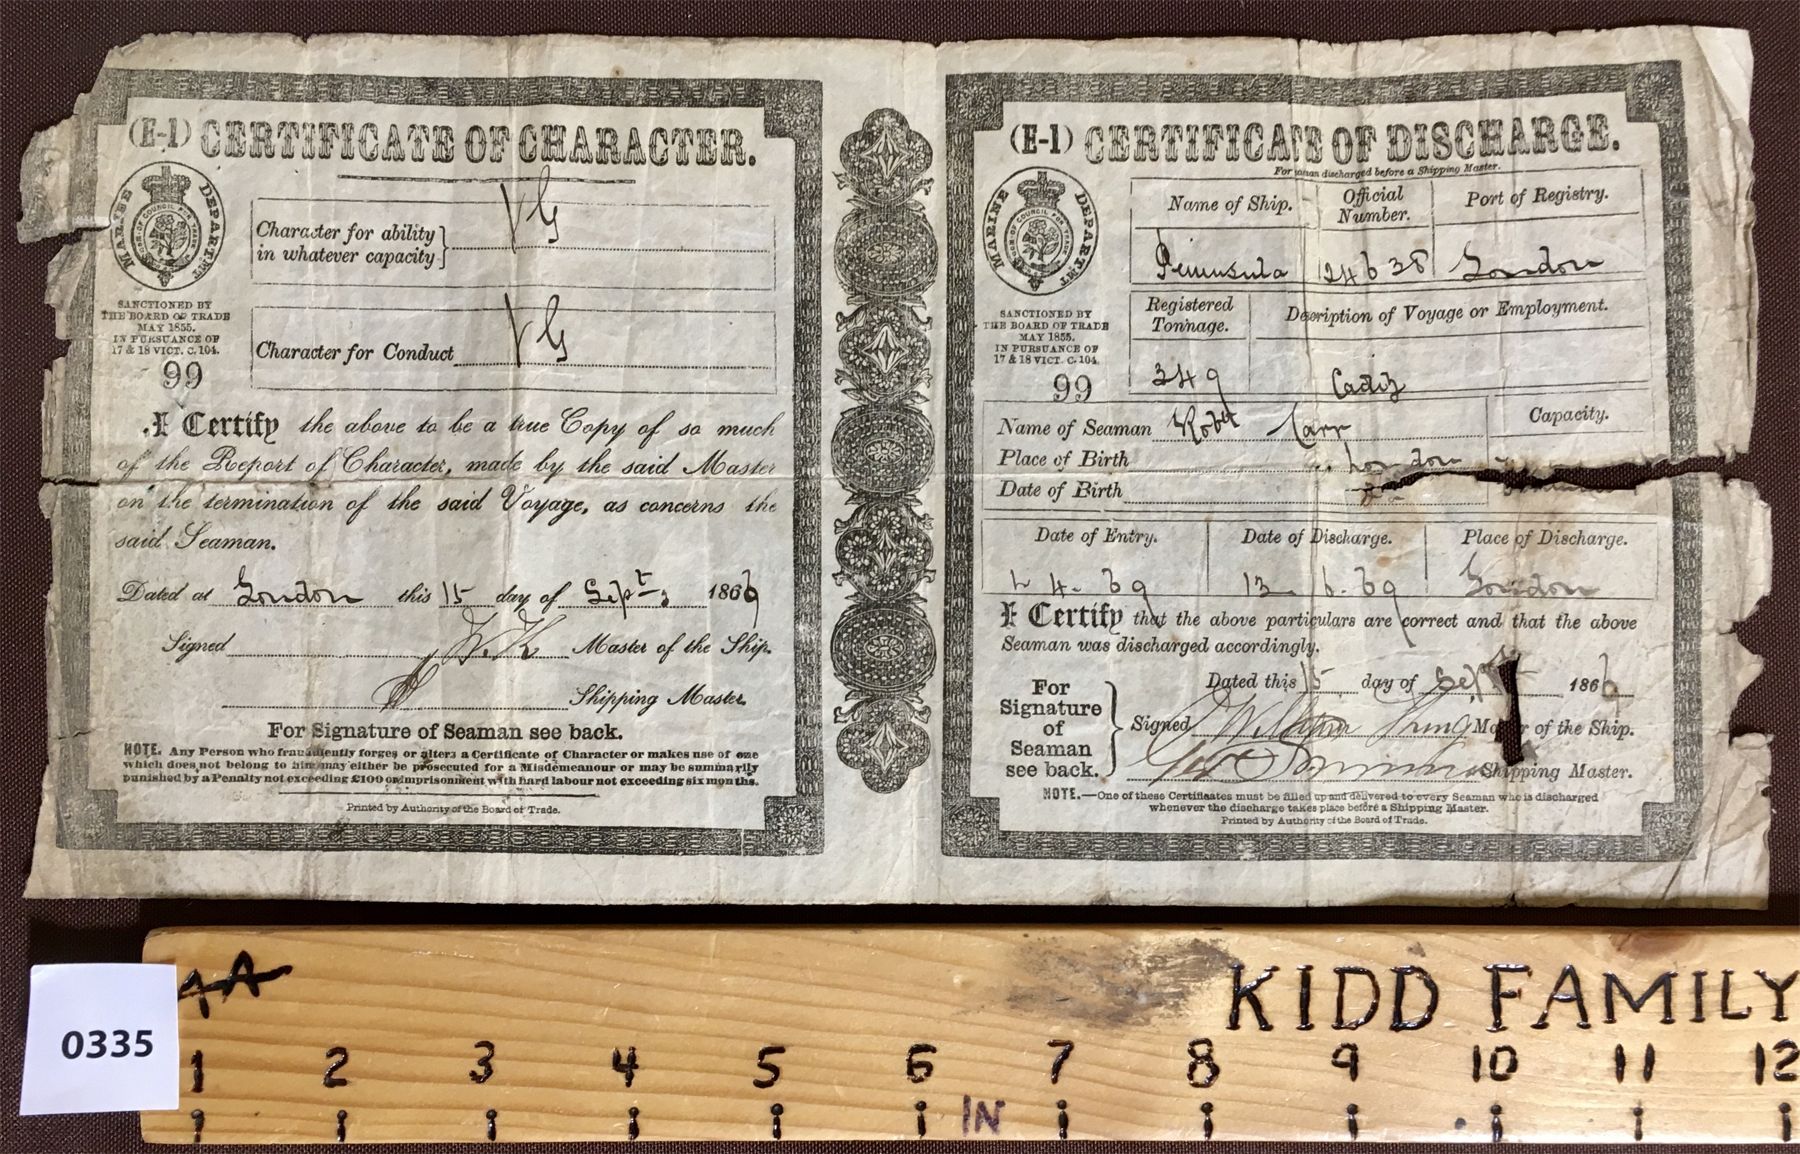 (E-1) CERTIFICATE OF CHARACTER.
MARINE DEPARTMT
SANCTIONED BY
THE BOARD OF TRADE
MAY 1855.
IN PURSUANCE OF
17 & 18 VICT. C. 104.
99
Character for ability
in whatever capacity
VG
Character for Conduct VG
I Certify the above to be a true Copy of so much
of the Report of Character, made by the said Master
on the termination of the said Voyage, as concerns the
said Seaman.
Dated at London this 15 day of Sept 1869
Signed W.K Master of the Ship.
Shipping Master
For Signature of Seaman see back.
NOTE. Any Person who fraudulently forges or alters a Certificate of Character or makes use of one
which does not belong to him may either be prosecuted for a Misdemeanour or may be summarily
punished by a Penalty not exceeding £100 or imprisonment with hard labour not exceeding six months.
Printed by Authority of the Board of Trade.
(E-1) CERTIFICATE OF DISCHARGE.
For seaman discharged before a Shipping Master.
MARINE DEPARTMT
SANCTIONED BY
THE BOARD OF TRADE
MAY 1855.
IN PURSUANCE OF
17 & 18 VICT. C. 104.
99
Name of Ship. Official Number. Port of Registry.
Peninsula 24638 London
Registered Tonnage. Description of Voyage or Employment.
349 Cadiz
Name of Seaman Robt Carr Capacity.
Place of Birth London
Date of Birth
Date of Entry. Date of Discharge. Place of Discharge.
4. 69 13 69 London
I Certify that the above particulars are correct and that the above
Seaman was discharged accordingly.
Dated this 15 day of Sept 186
For
Signature
of
Seaman
see back.
Signed William Master of the Ship.
Shipping Master.
NOTE.—One of these Certificates must be filled up and delivered to every Seaman who is discharged
whenever the discharge takes place before a Shipping Master.
Printed by Authority of the Board of Trade.
0335
AA
KIDD FAMILY
1 2 3 4 5 6 7 8 9 10 11 12
IN